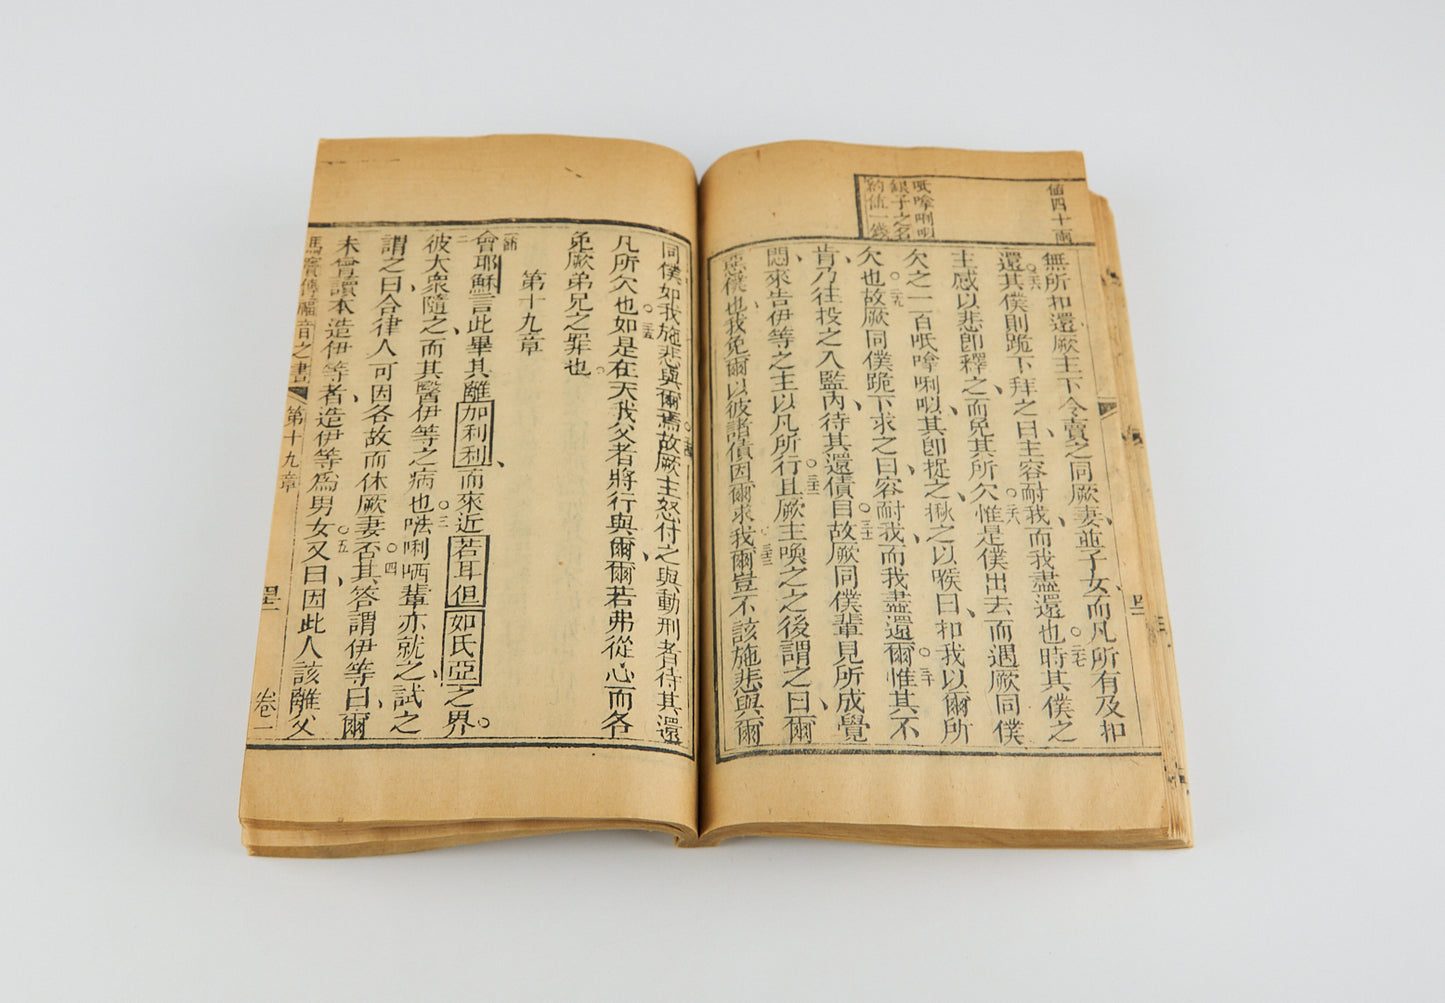 值四十兩
呧唥唎吅
銀子之名
約值一錢
無所扣還厥主下令賣之同厥妻並子女而凡所有及扣
還其○二六僕則跪下拜之曰主容耐我而我盡還也○二七時其僕之
主感以悲卽釋之而免其所欠惟○二八是僕出去而遇厥同僕
欠之一百呧唥唎吅其卽捉之揪之以喉曰扣我以爾所
欠也○二九故厥同僕跪下求之曰容耐我而我盡還爾○三十惟其不
肯乃往投之入監內待其還債○三一自故厥同僕輩見所成覺
悶來告伊等之主以凡所行○三二且厥主喚之之後謂之曰爾
惡僕也我免爾以彼諸債因爾求我○三三爾豈不該施悲與爾
同僕如我施悲與爾焉○三四故厥主怒付之與動刑者待其還
凡所欠也○三五如是在天我父者將行與爾爾若弗從心而各
免厥弟兄之罪也。
第十九章
一節會耶穌言此畢其離加利利而來近若耳但如氏亞之界。
二彼大衆隨之而其醫伊等之病也○三𠵽唎哂輩亦就之試之
謂之曰合律人可因各故而休厥妻否○四其答謂伊等曰爾
未曾讀本造伊等者造伊等爲男女○五又曰因此人該離父
馬竇傳福音之書 第十九章 四二 卷一